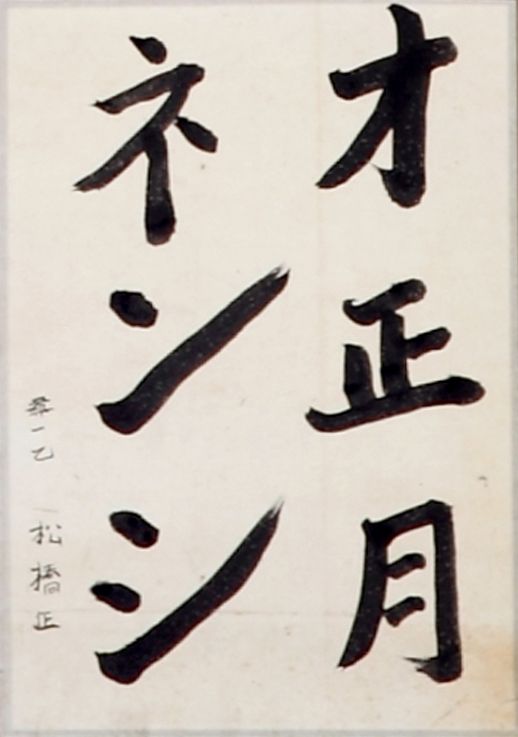 オ正月
ネンシ
一乙 松橋正